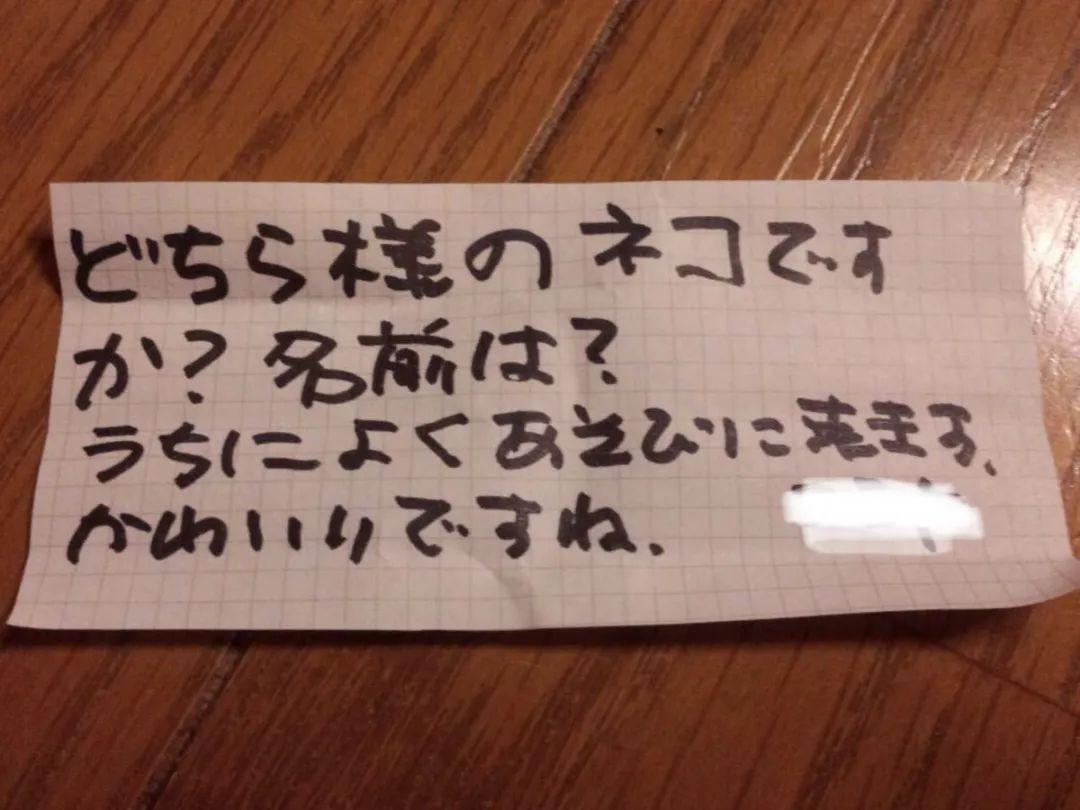 どちら様のネコです
か?名前は?
うちによくあそびに来ます、
かわいいですね.